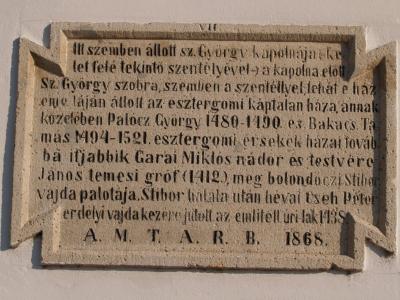 VII
Itt szemben állott sz. György kapolnája (ke
let felé tekintö szentélyével) a kapolna elött
Sz. György szobra, szemben a szentéllyel, tehát e ház
enje táján állott az esztergomi káptalan háza, annak
közelében Palócz György 1480-1490. es Bakacs Ta
más 1494-1521. esztergomi érsekek házai továb
bá ifjabbik Garai Miklós nádor és testvére
János temesi gróf (1412.), meg bolondóczi Stibor
vajda palotája. Stibor halála után hévai Cseh Péter
erdélyi vajda kezére jutott az emlitett úri lak 1435
A. M. T. A. R. B. 1868.